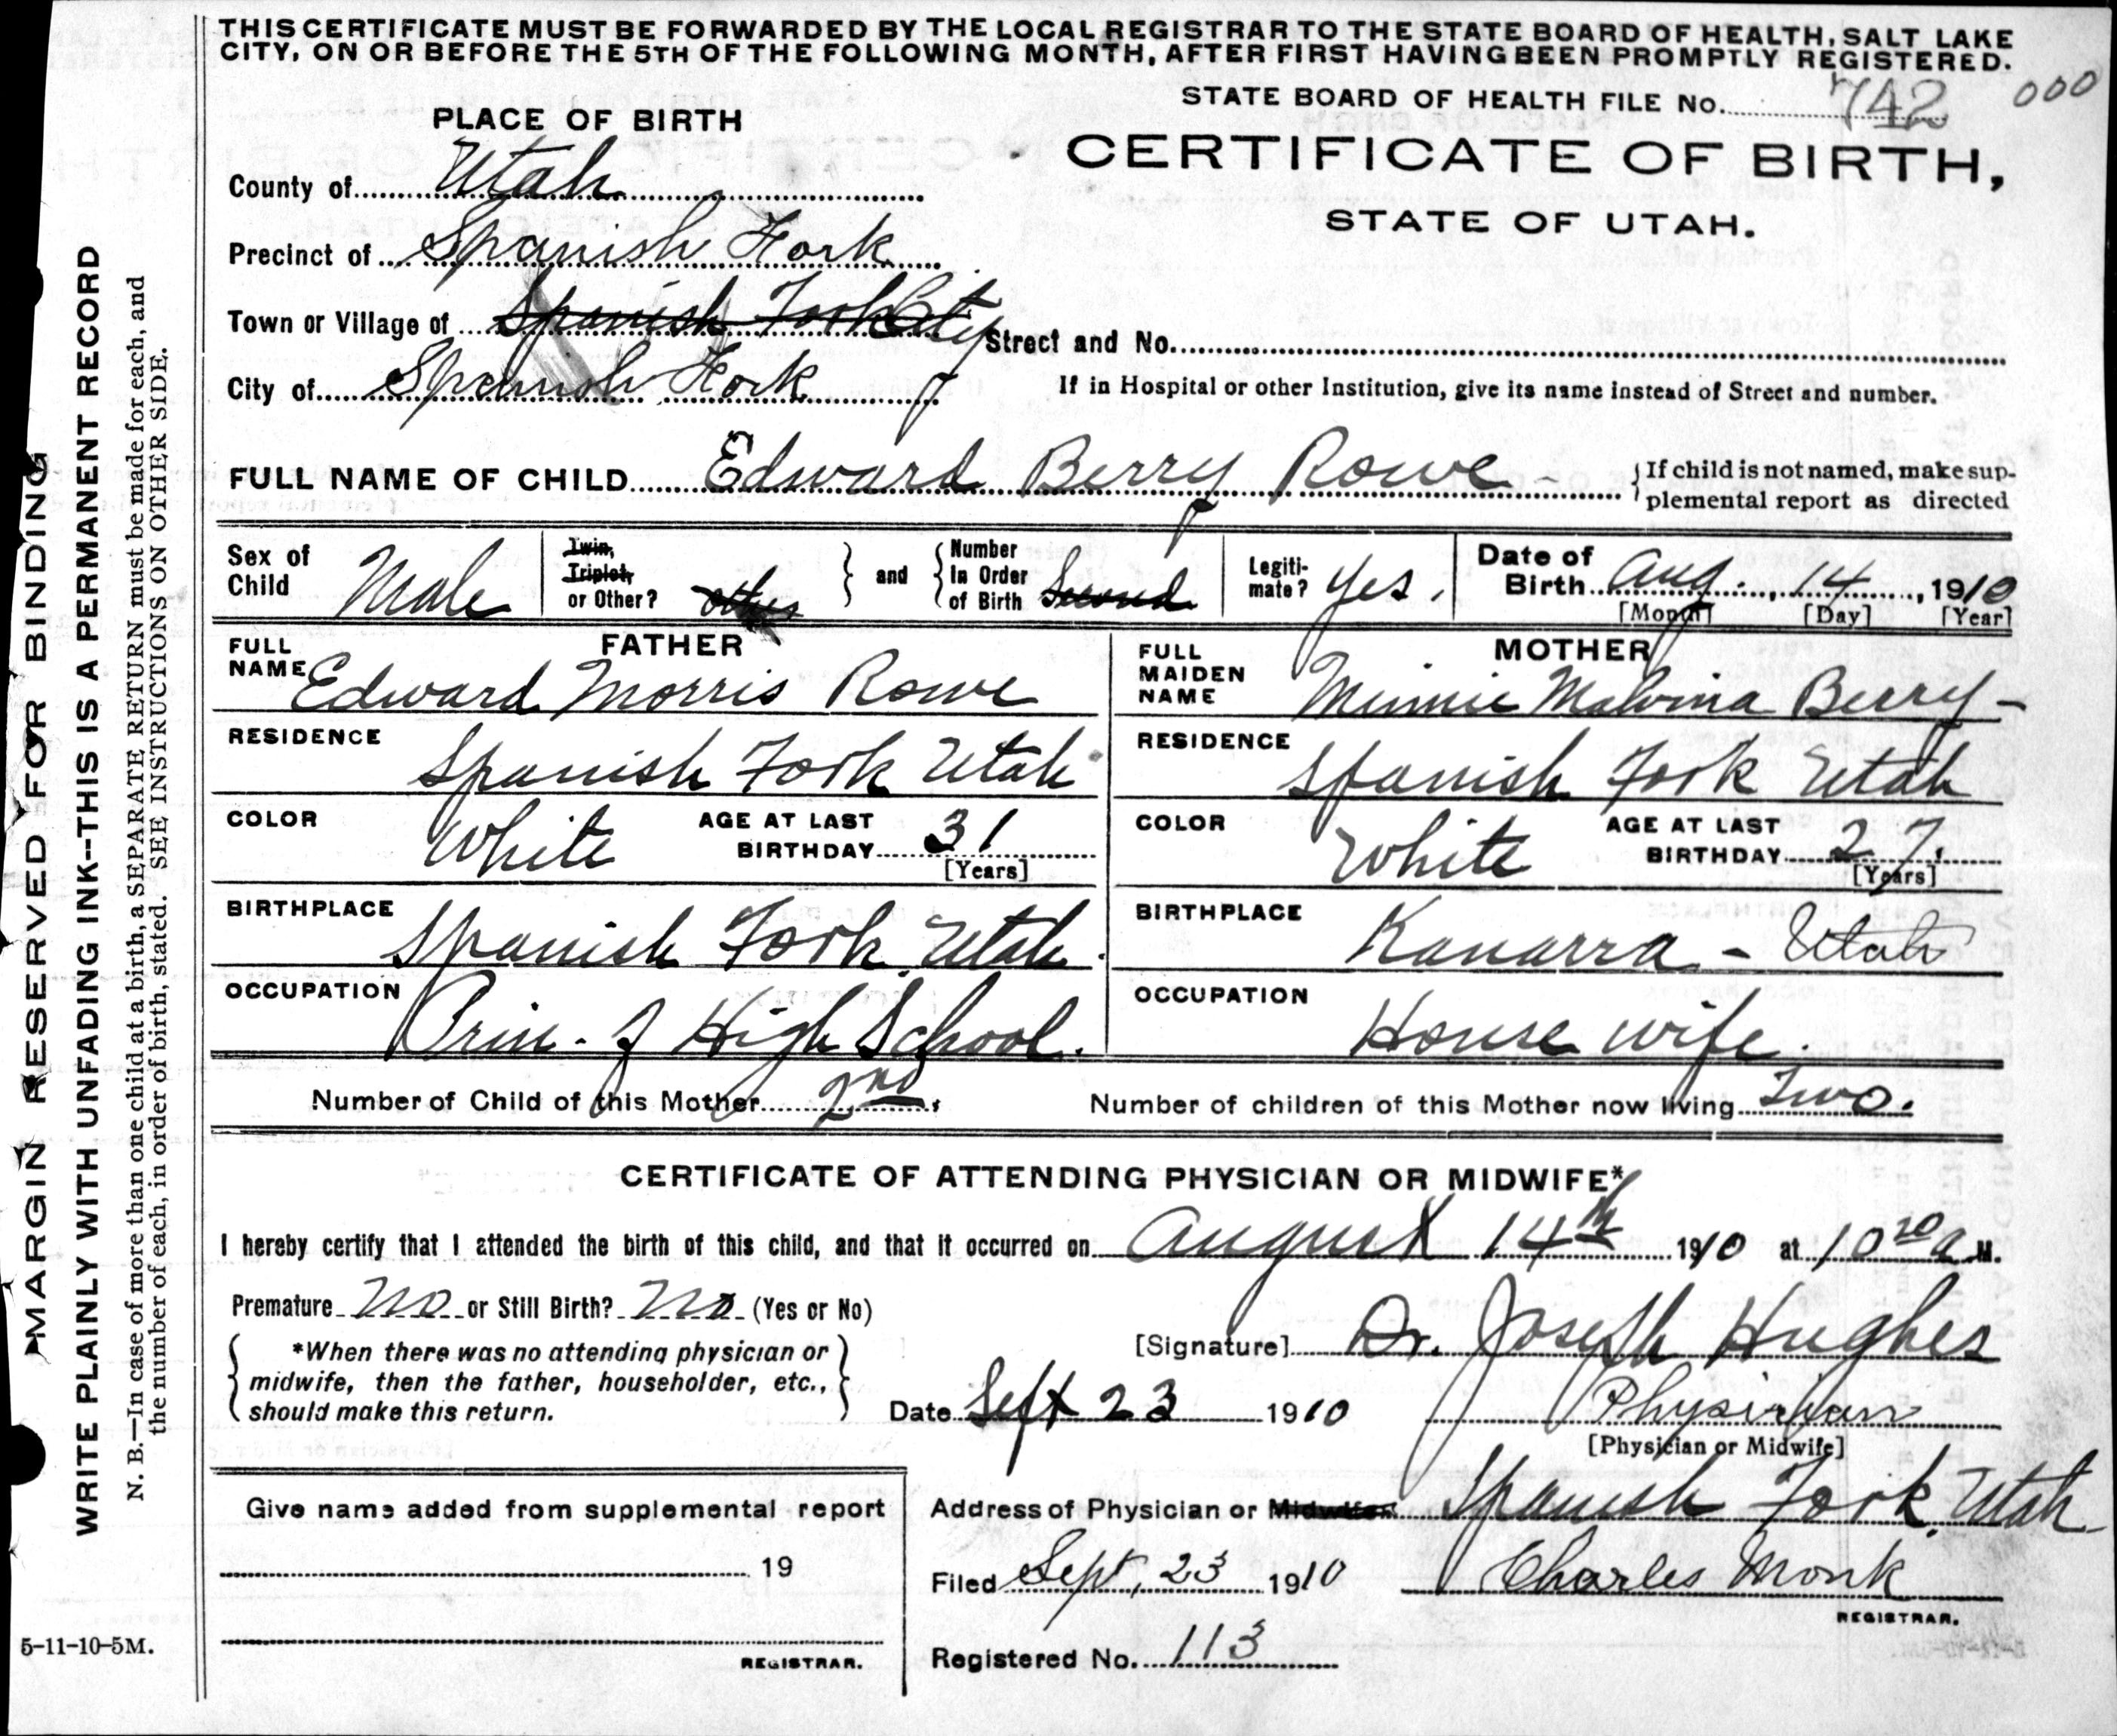 THIS CERTIFICATE MUST BE FORWARDED BY THE LOCAL REGISTRAR TO THE STATE BOARD OF HEALTH, SALT LAKE
CITY, ON OR BEFORE THE 5TH OF THE FOLLOWING MONTH, AFTER FIRST HAVING BEEN PROMPTLY REGISTERED.
STATE BOARD OF HEALTH FILE No. 742 000
PLACE OF BIRTH
CERTIFICATE OF BIRTH,
STATE OF UTAH.
County of Utah
Precinct of Spanish Fork
Town or Village of Spanish Fork City
Street and No.
City of Spanish Fork
If in Hospital or other Institution, give its name instead of Street and number.
FULL NAME OF CHILD Edward Berry Rowe
If child is not named, make sup-
plemental report as directed
Sex of Child Male
Twin, Triplet, or Other? other
and Number In Order of Birth Second
Legiti-mate? Yes.
Date of Birth Aug. 14, 1910
[Month] [Day] [Year]
FATHER
FULL NAME Edward Morris Rowe
RESIDENCE Spanish Fork Utah
COLOR White AGE AT LAST BIRTHDAY 31 [Years]
BIRTHPLACE Spanish Fork, Utah.
OCCUPATION Prin. of High School.
MOTHER
FULL MAIDEN NAME Minnie Malvina Berry-
RESIDENCE Spanish Fork Utah
COLOR White AGE AT LAST BIRTHDAY 27. [Years]
BIRTHPLACE Kanarra - Utah
OCCUPATION House wife.
Number of Child of this Mother 2nd.
Number of children of this Mother now living Two.
CERTIFICATE OF ATTENDING PHYSICIAN OR MIDWIFE*
I hereby certify that I attended the birth of this child, and that it occurred on August 14th 1910 at 10 20 a M.
Premature No or Still Birth? No (Yes or No)
*When there was no attending physician or
midwife, then the father, householder, etc.,
should make this return.
[Signature] Dr. Joseph Hughes
Date Sept 23 1910 Physician
[Physician or Midwife]
Give name added from supplemental report
19
REGISTRAR.
Address of Physician or Midwife Spanish Fork, Utah-
Filed Sept, 23 1910 Charles Monk
REGISTRAR.
Registered No. 113
MARGIN RESERVED FOR BINDING
WRITE PLAINLY WITH UNFADING INK--THIS IS A PERMANENT RECORD
N. B.—In case of more than one child at a birth, a SEPARATE RETURN must be made for each, and
the number of each, in order of birth, stated. SEE INSTRUCTIONS ON OTHER SIDE.
5-11-10-5M.